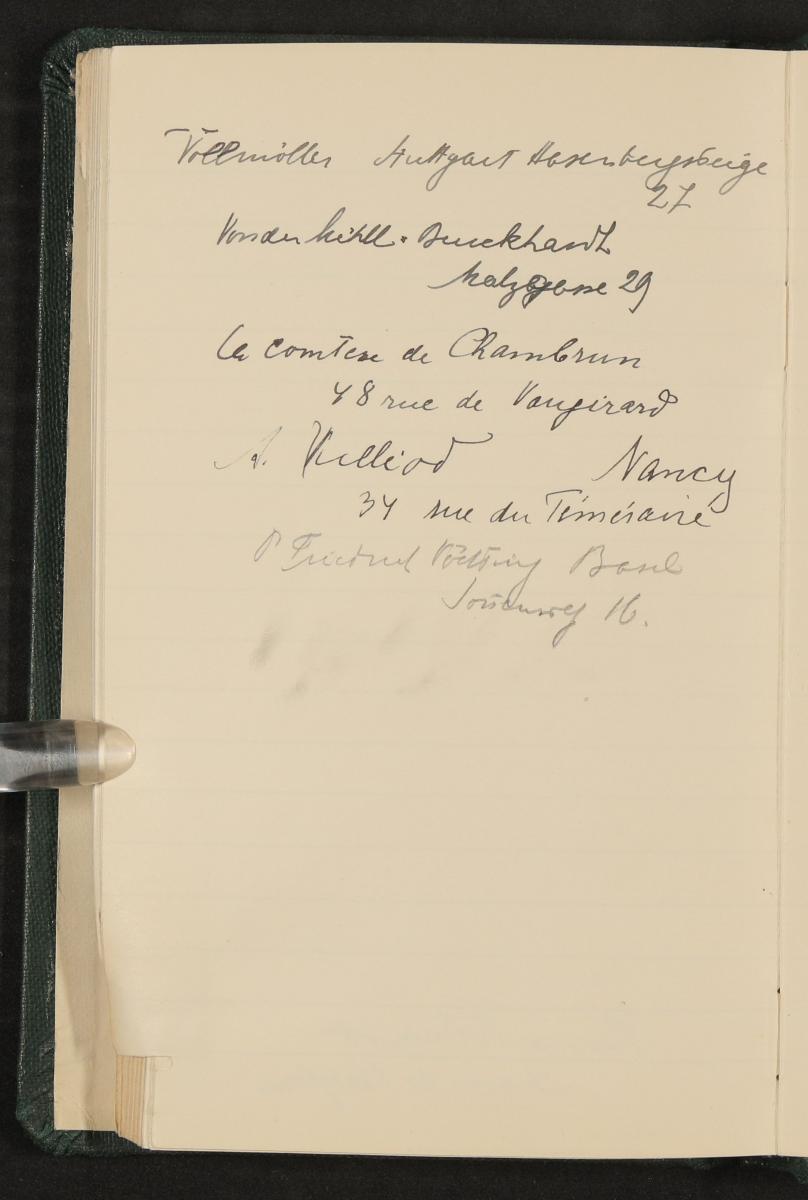 Vollmöller Stuttgart Hasenbergsteige
27
Vonder Mühll-Burckhardt
Malzgasse 29
La comtesse de Chambrun
48 rue de Vaugirard
A. Vuilliod Nancy
34 rue du Téméraire
Dr Friedrich Vöchting Basel
16.